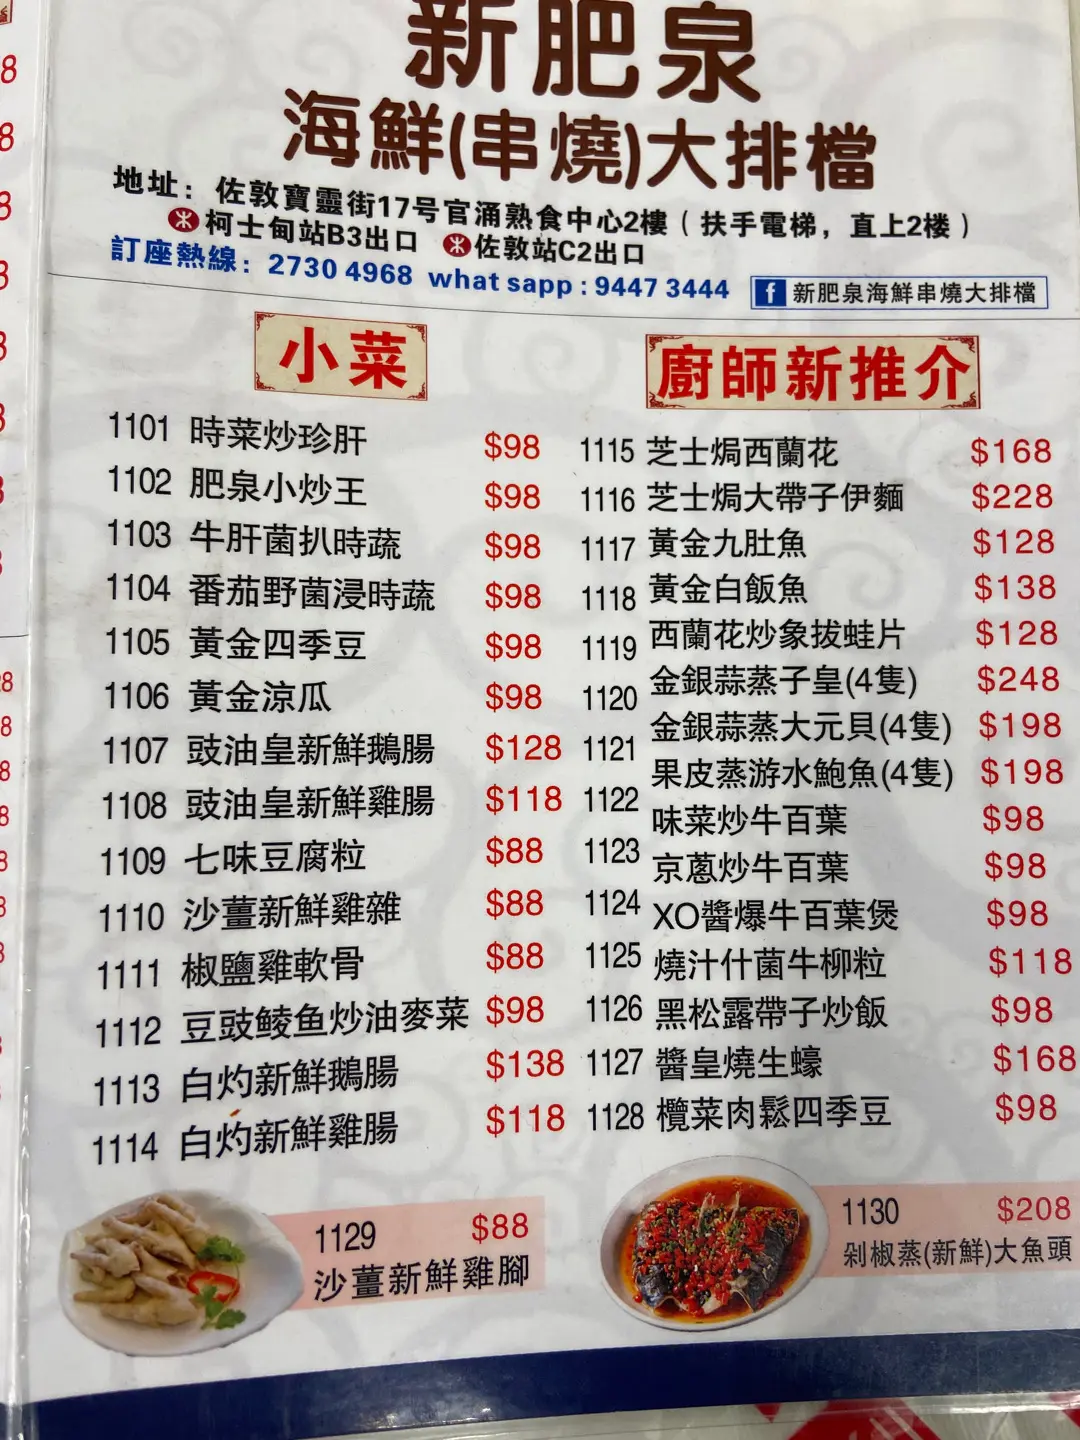 新肥泉
海鮮(串燒)大排檔
地址：佐敦寶靈街17号官涌熟食中心2樓（扶手電梯，直上2楼）
柯士甸站B3出口 佐敦站C2出口
訂座熱線：2730 4968 what sapp : 9447 3444
f 新肥泉海鮮串燒大排檔
小菜
1101 時菜炒珍肝 $98
1102 肥泉小炒王 $98
1103 牛肝菌扒時蔬 $98
1104 番茄野菌浸時蔬 $98
1105 黃金四季豆 $98
1106 黃金涼瓜 $98
1107 豉油皇新鮮鵝腸 $128
1108 豉油皇新鮮雞腸 $118
1109 七味豆腐粒 $88
1110 沙薑新鮮雞雜 $88
1111 椒鹽雞軟骨 $88
1112 豆豉鲮鱼炒油麥菜 $98
1113 白灼新鮮鵝腸 $138
1114 白灼新鮮雞腸 $118
廚師新推介
1115 芝士焗西蘭花 $168
1116 芝士焗大帶子伊麵 $228
1117 黃金九肚魚 $128
1118 黃金白飯魚 $138
1119 西蘭花炒象拔蛙片 $128
1120 金銀蒜蒸子皇(4隻) $248
1121 金銀蒜蒸大元貝(4隻) $198
1122 果皮蒸游水鮑魚(4隻) $198
1123 味菜炒牛百葉 $98
1124 京蔥炒牛百葉 $98
1125 XO醬爆牛百葉煲 $98
1126 燒汁什菌牛柳粒 $118
1127 黑松露帶子炒飯 $98
1128 醬皇燒生蠔 $168
欖菜肉鬆四季豆 $98
1129 $88
沙薑新鮮雞腳
1130 $208
剁椒蒸(新鮮)大魚頭